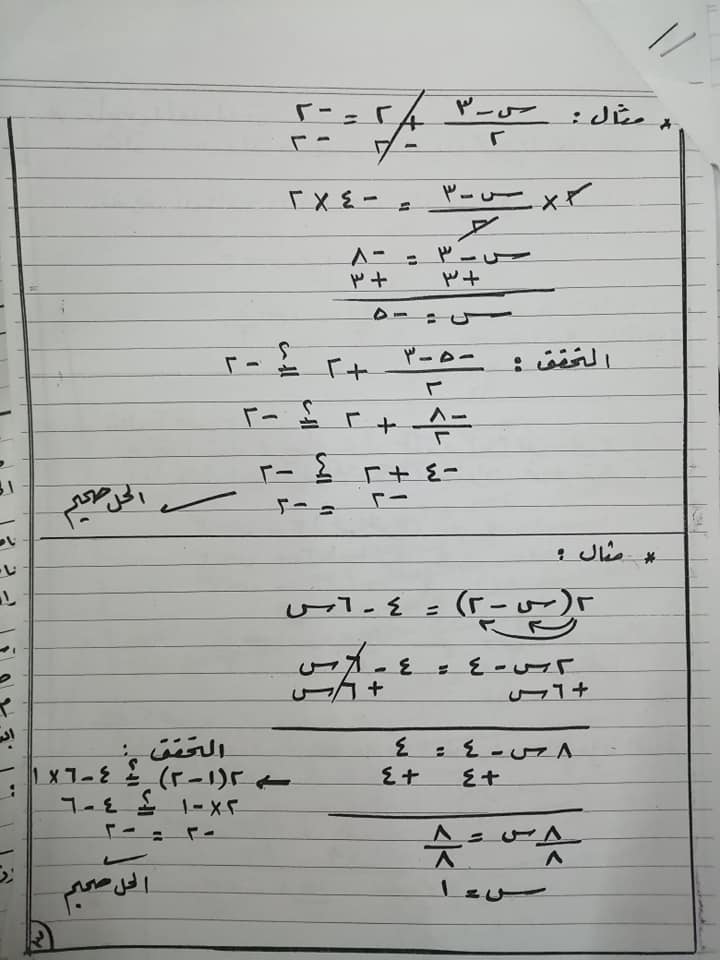 * مثال : (س - ٣)/٢ + ٢ = -٢
-٢ -٢
٢ × (س - ٣)/٢ = -٤ × ٢
س - ٣ = -٨
+٣ +٣
س = -٥
التحقق : (-٥ - ٣)/٢ + ٢ ≟ -٢
-٨/٢ + ٢ ≟ -٢
-٤ + ٢ ≟ -٢
-٢ = -٢ ✓ الحل صحيح
* مثال :
٢(س - ٢) = ٤ - ٦س
٢س - ٤ = ٤ - ٦س
+٦س +٦س
٨س - ٤ = ٤
+٤ +٤
٨س/٨ = ٨/٨
س = ١
التحقق :
← ٢(١ - ٢) ≟ ٤ - ٦ × ١
٢ × -١ ≟ ٤ - ٦
-٢ = -٢
✓
الحل صحيح